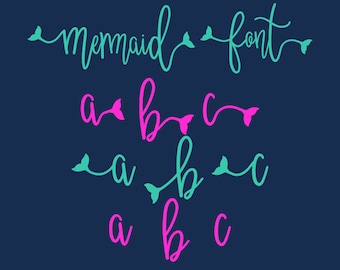 mermaid font
a b c
a b c
a b c